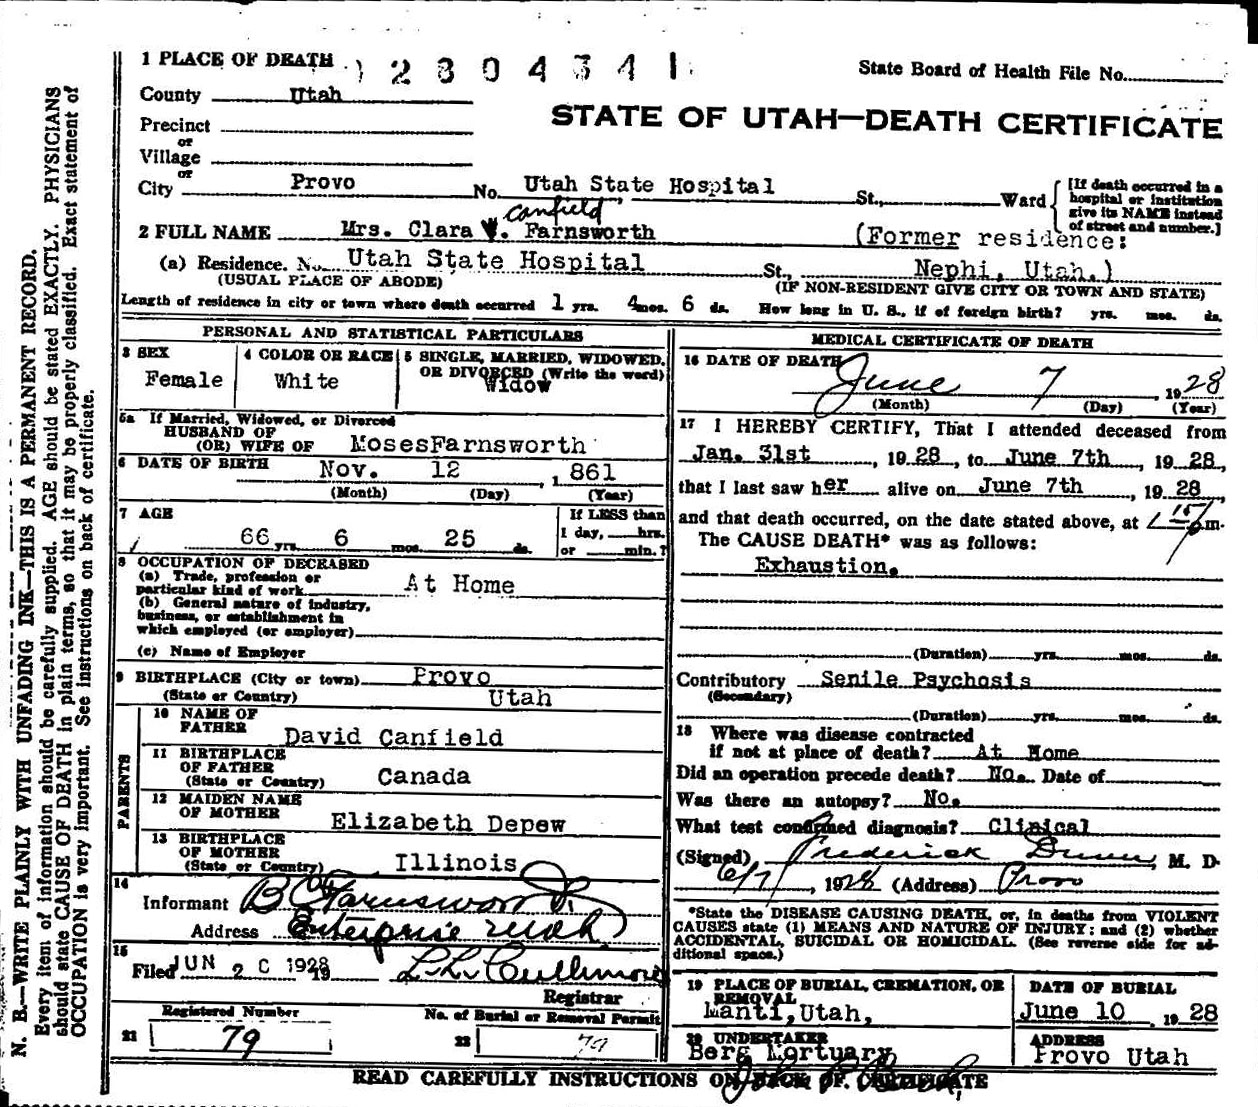 N. B.—WRITE PLAINLY WITH UNFADING INK—THIS IS A PERMANENT RECORD.
Every item of information should be carefully supplied. AGE should be stated EXACTLY. PHYSICIANS
should state CAUSE OF DEATH in plain terms, so that it may be properly classified. Exact statement of
OCCUPATION is very important. See instructions on back of certificate.
1 PLACE OF DEATH
State Board of Health File No.
County Utah
STATE OF UTAH—DEATH CERTIFICATE
Precinct
or
Village
or
City Provo No. Utah State Hospital St., Ward
[If death occurred in a
hospital or institution
give its NAME instead
of street and number.]
Canfield
2 FULL NAME Mrs. Clara Farnsworth (Former residence:
(a) Residence. No. Utah State Hospital St., Nephi, Utah.)
(USUAL PLACE OF ABODE) (IF NON-RESIDENT GIVE CITY OR TOWN AND STATE)
Length of residence in city or town where death occurred 1 yrs. 4 mos. 6 ds. How long in U. S., if of foreign birth? yrs. mos. ds.
PERSONAL AND STATISTICAL PARTICULARS
3 SEX
Female
4 COLOR OR RACE
White
5 SINGLE, MARRIED, WIDOWED,
OR DIVORCED (Write the word)
Widow
5a If Married, Widowed, or Divorced
HUSBAND OF
(OR) WIFE OF MosesFarnsworth
6 DATE OF BIRTH Nov. 12 , 1861
(Month) (Day) (Year)
7 AGE
66 yrs. 6 mos. 25 ds.
If LESS than
1 day, hrs.
or min.?
8 OCCUPATION OF DECEASED
(a) Trade, profession or
particular kind of work At Home
(b) General nature of industry,
business, or establishment in
which employed (or employer)
(c) Name of Employer
9 BIRTHPLACE (City or town) Provo
(State or Country) Utah
PARENTS
10 NAME OF
FATHER David Canfield
11 BIRTHPLACE
OF FATHER
(State or Country) Canada
12 MAIDEN NAME
OF MOTHER Elizabeth Depew
13 BIRTHPLACE
OF MOTHER
(State or Country) Illinois
14
Informant B C Farnsworth Jr.
Address Enterprise Utah.
15
Filed JUN 2 1928 19 L.L. Cullimore
Registrar
Registered Number
No. of Burial or Removal Permit
21 79
22 79
MEDICAL CERTIFICATE OF DEATH
16 DATE OF DEATH
June 7 , 1928
(Month) (Day) (Year)
17 I HEREBY CERTIFY, That I attended deceased from
Jan. 31st , 1928, to June 7th , 1928,
that I last saw her alive on June 7th , 1928,
and that death occurred, on the date stated above, at 1 15 p m.
The CAUSE DEATH* was as follows:
Exhaustion.
(Duration) yrs. mos. ds.
Contributory Senile Psychosis
(Secondary)
(Duration) yrs. mos. ds.
18 Where was disease contracted
if not at place of death? At Home
Did an operation precede death? No. Date of
Was there an autopsy? No.
What test confirmed diagnosis? Clinical
(Signed) Frederick Dunn, M. D.
6/7 , 1928 (Address) Provo
*State the DISEASE CAUSING DEATH, or, in deaths from VIOLENT
CAUSES state (1) MEANS AND NATURE OF INJURY; and (2) whether
ACCIDENTAL, SUICIDAL OR HOMICIDAL. (See reverse side for ad-
ditional space.)
19 PLACE OF BURIAL, CREMATION, OR
REMOVAL
Manti, Utah,
DATE OF BURIAL
June 10 , 1928
20 UNDERTAKER
Berg Mortuary
ADDRESS
Provo Utah
READ CAREFULLY INSTRUCTIONS ON BACK OF CERTIFICATE